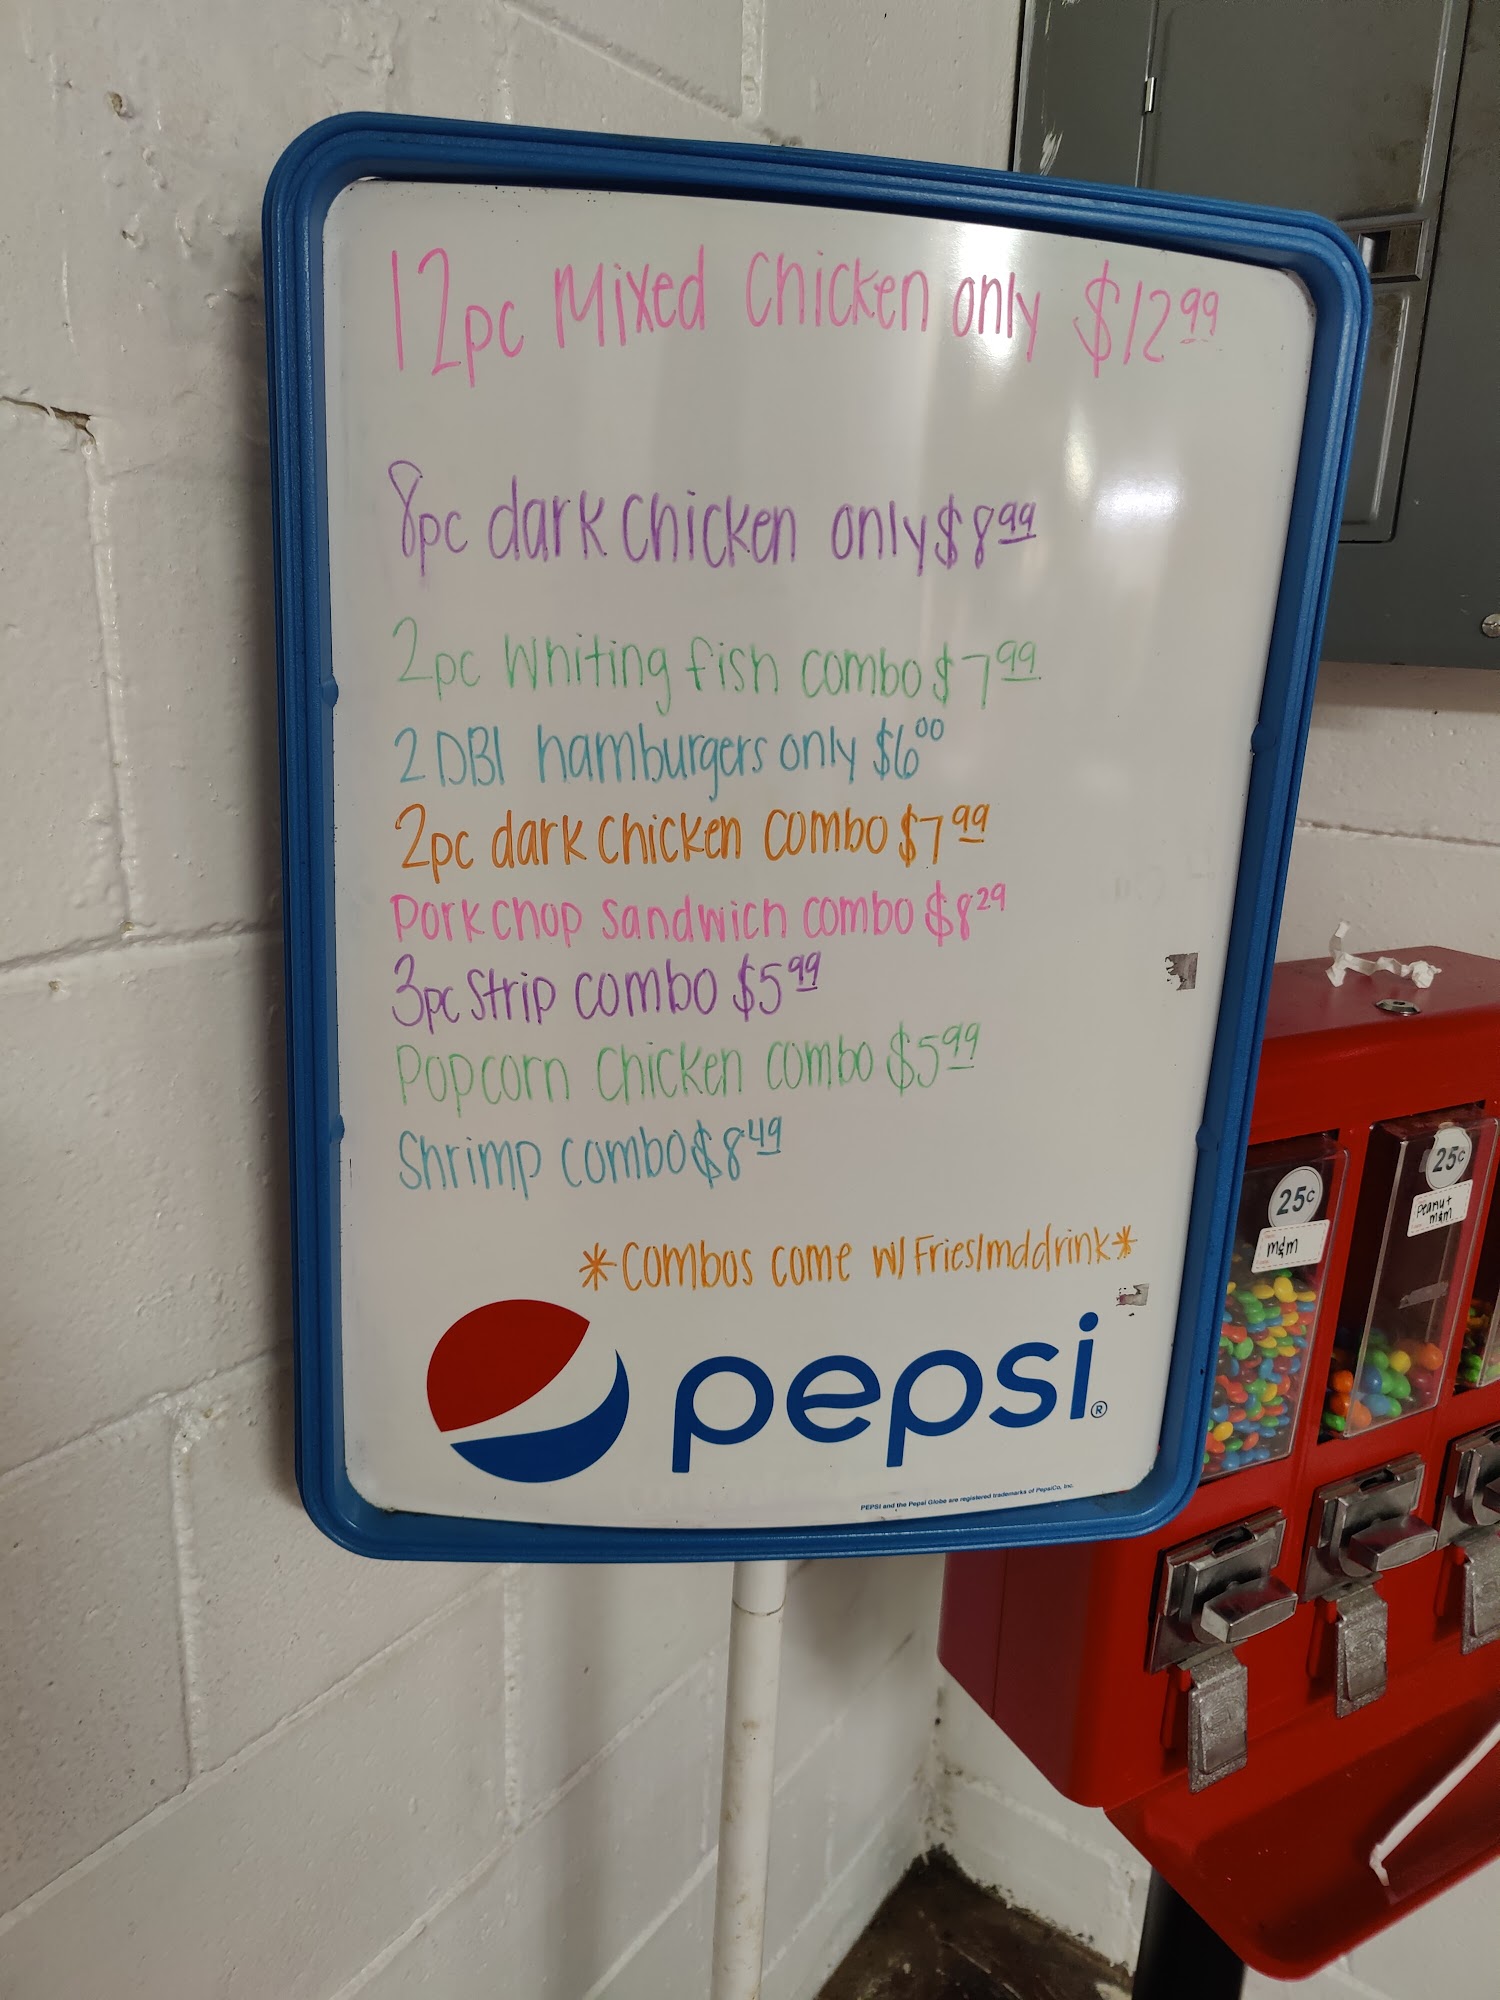 12pc Mixed Chicken only $12.99
8pc dark chicken only $8.99
2pc Whiting fish combo $7.99
2 DBl hamburgers only $6.00
2pc dark chicken combo $7.99
Porkchop Sandwich combo $8.29
3pc Strip combo $5.99
Popcorn Chicken combo $5.99
Shrimp combo $8.49
*Combos come w/ Fries/mddrink*
pepsi®
PEPSI and the Pepsi Globe are registered trademarks of PepsiCo, Inc.
25¢
m&m
25¢
Peanut
m&m